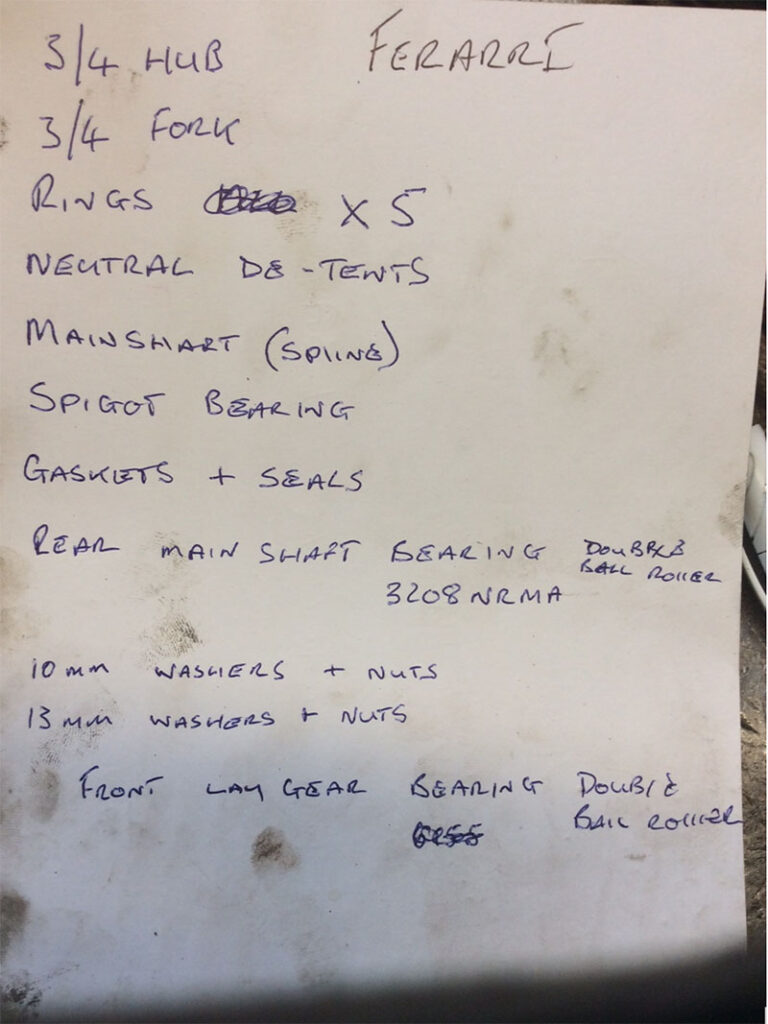 3/4 HUB FERARRI
3/4 FORK
RINGS X 5
NEUTRAL DE-TENTS
MAINSHART (SPLINE)
SPIGOT BEARING
GASKETS + SEALS
REAR MAIN SHAFT BEARING DOUBBLE
BALL ROLLER
3208 NRMA
10mm WASHERS + NUTS
13mm WASHERS + NUTS
FRONT LAY GEAR BEARING DOUBLE
BALL ROLLER